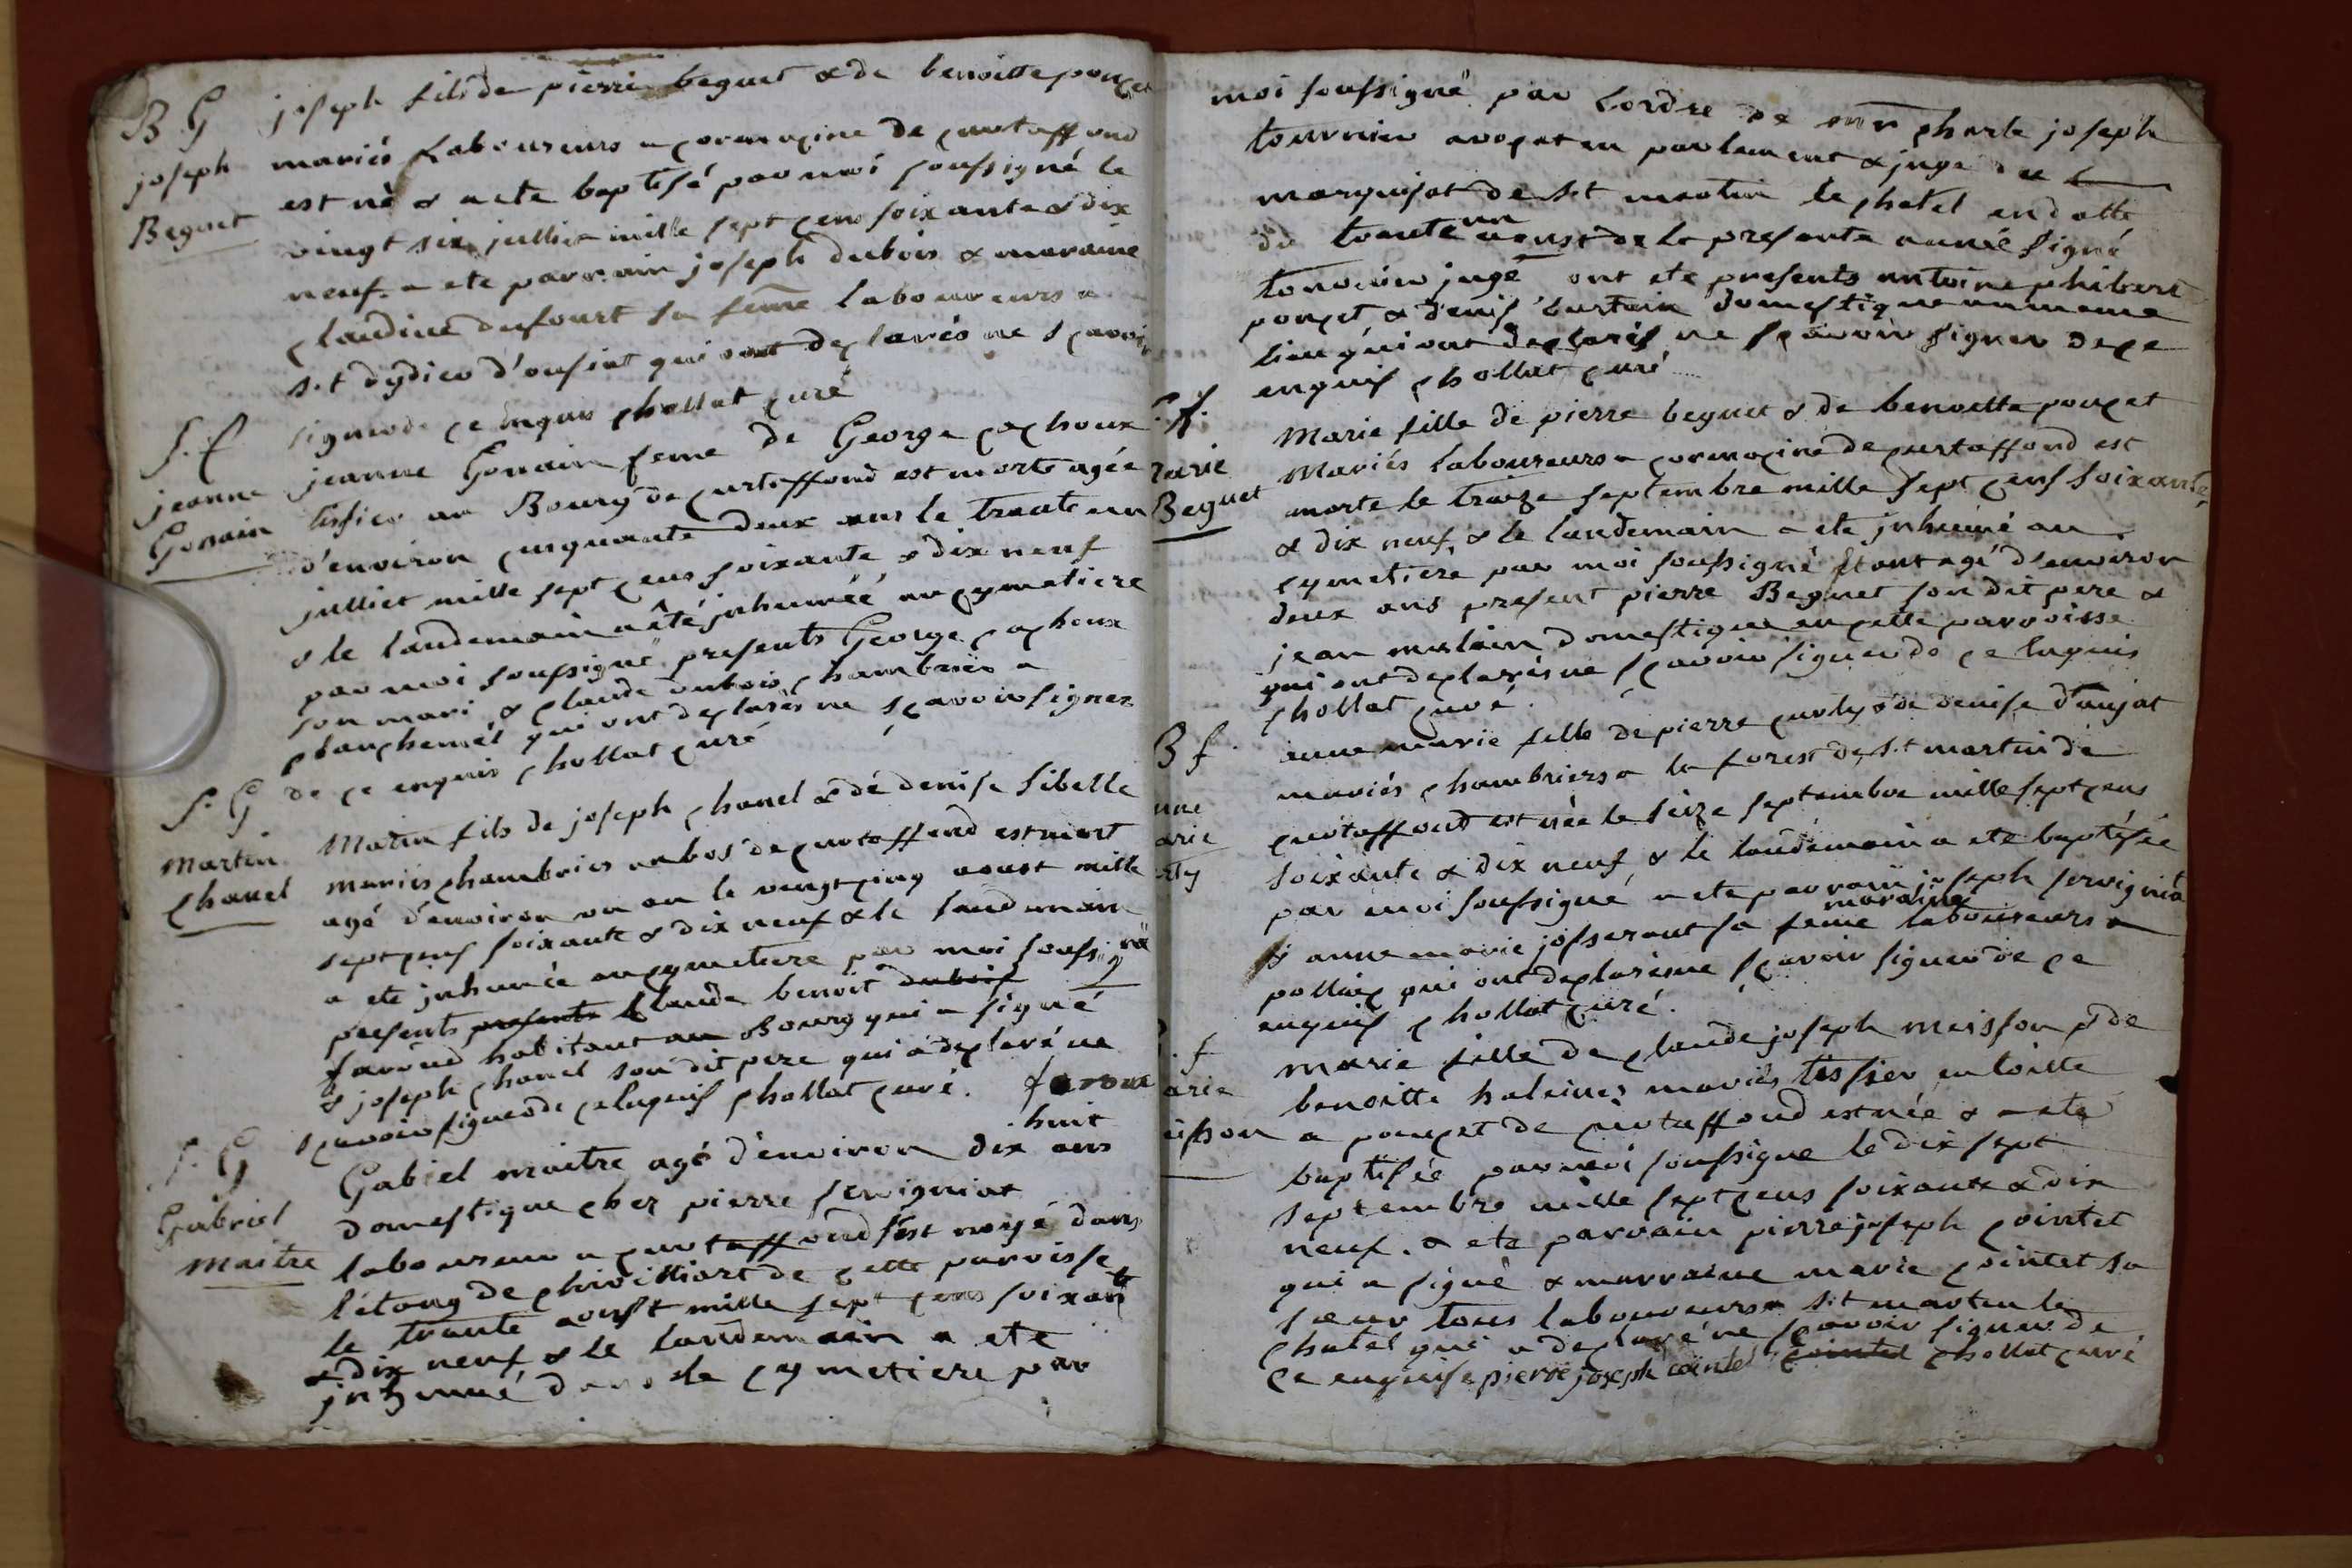 B G joseph fils de pierre beguet & de benoitte pouget
joseph mariés laboureurs a cormagine de curtaffond
Beguet est né & a ete baptisé par moi soussigné le
vingt six julliet mille sept cens soixante & dix
neuf. a ete parrain joseph dubois & maraine
claudine dufourt sa feme laboureurs a
s.t dydier d'oussiat qui ont declarés ne sçavoir
signer de ce enquis chollat curé
S. f jeanne Gonain feme de George cachoux
jeanne tissier au Bourg de curtaffond est morte agée
Gonain d'environ cinquante deux ans le trente un
julliet mille sept cens soixante & dix neuf
& le landemain a été inhumée au cymetiere
par moi soussigné presents George cachoux
son mari & claude dubois chambrier a
qui ont declarés ne sçavoir signer
de ce enquis chollat curé
S. G Matin fils de joseph chanel & de denise sibelle
martin mariés chambriers au bos de curtaffond est mort
chanel agé d'environ un an le vingt cinq aoust mille
sept cens soixante & dix neuf & le landemain
a ete inhumée au cymetiere par moi soussigné
presents presents claude benoit dubois
favoud habitant au Bourg qui a signé
& joseph chanel son dit pere qui a declaré ne
sçavoir signer de ce enquis chollat curé.
huit
S. G Gabiel maitre agé d'environ dix ans
Gabriel domestique chez pierre servigniat
maitre laboureur a curtaffond s'est noyé dans
l'étang de de cette parroisse
le trante aoust mille sept cens soixante
& dix neuf & le landemain a ete
inhumé dans le cymetiere par
moi soussigné par l'ordre de charle joseph
tournier avocat en parlement & juge du
marquisat de s.t martin le chatel en datte
un
du trante aoust de la presente année signé
tournier juge ont ete presents antoine phibert
pouget & denis curtain domestique au meme
lieu qui ont declarés ne sçavoir signer de ce
enquis chollat curé
S. f. Marie fille de pierre beguet & de benoitte pouget
marie Mariés laboureurs a cormagine de curtaffond est
Beguet morte le traize septembre mille sept cens soixante
& dix neuf & le landemain a ete inhumé au
cymetiere par moi soussigné etant agé d'environ
deux ans present pierre Beguet son dit pere &
jean merlain domestique en cette parroisse
qui ont declarés ne sçavoir signer de ce enquis
chollat curé.
B f. anne marie fille de pierre curty & de denise d'aujat
mariés chambriers a la forest de s.t martin de
nne curtaffond est née le seize septembre mille sept cens
arie soixante & dix neuf & le landemain a ete baptisée
rty par moi soussigné a ete parrain joseph servignat
maraine
& anne marie josserant sa feme laboureurs a
polliac qui ont declarés ne sçavoir signer de ce
enquis chollat curé.
. f marie fille de claude joseph maisson & de
arie benoitte halaines mariés tissier en toille
aisson a pouget de curtaffond est née & a ete
baptisée par moi soussigne le dix sept
septembre mille sept cens soixante & dix
neuf. a ete parrain pierre joseph cointet
qui a signé & marraine marie cointet sa
sœur tous laboureurs a s.t martin le
chatel qui a declaré ne sçavoir signer de
ce enquise pierre joseph cointet cointet chollat curé